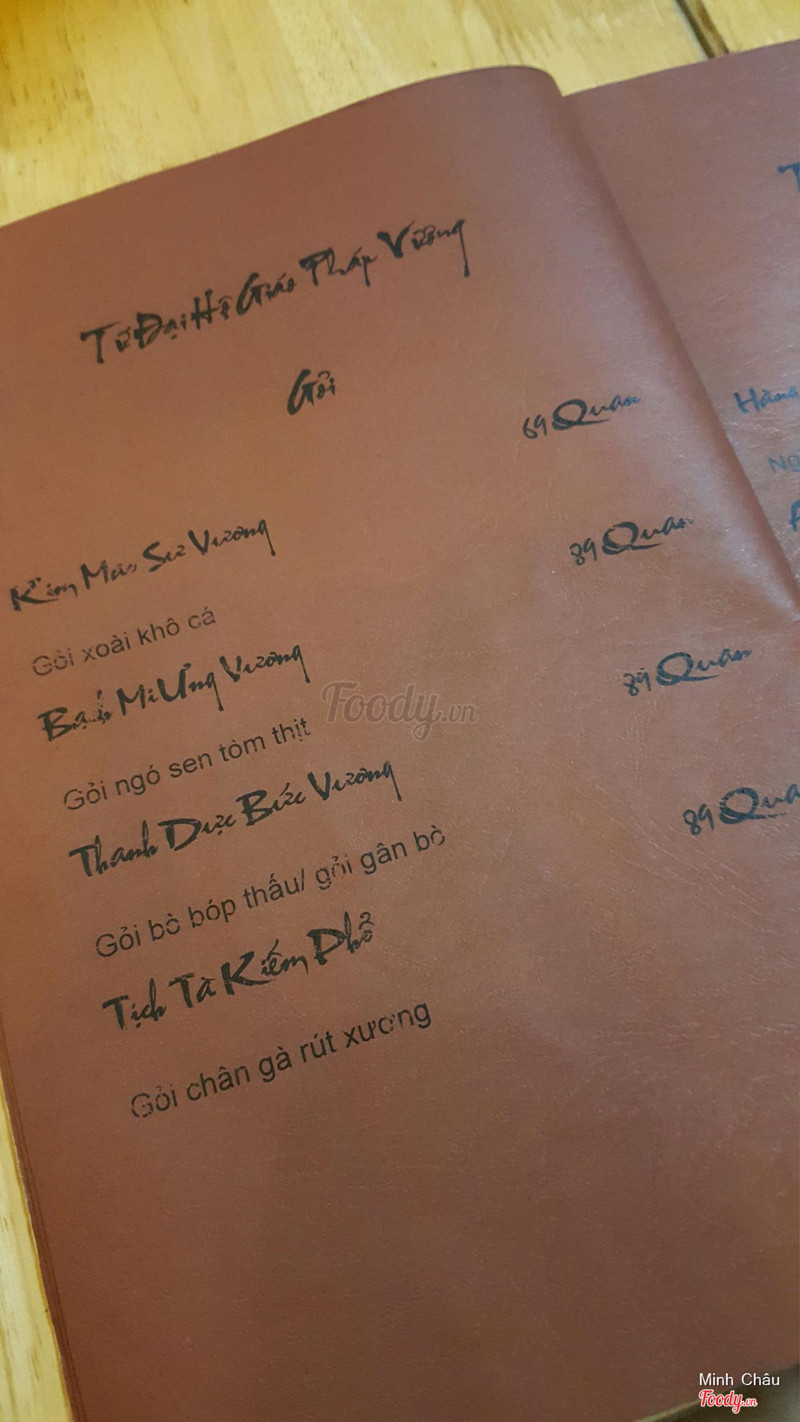 Tứ Đại Hộ Giáo Pháp Vương
Gỏi
Kim Mao Sư Vương 69 Quan
Gỏi xoài khô cá
Bạch Mi Ưng Vương 89 Quan
Gỏi ngó sen tôm thịt
Thanh Dực Bức Vương 89 Quan
Gỏi bò bóp thấu/ gỏi gân bò
Tịch Tà Kiếm Phổ 89 Qua
Gỏi chân gà rút xương
T
Hàng
Ng
Foody.vn
Minh Châu
Foody.vn